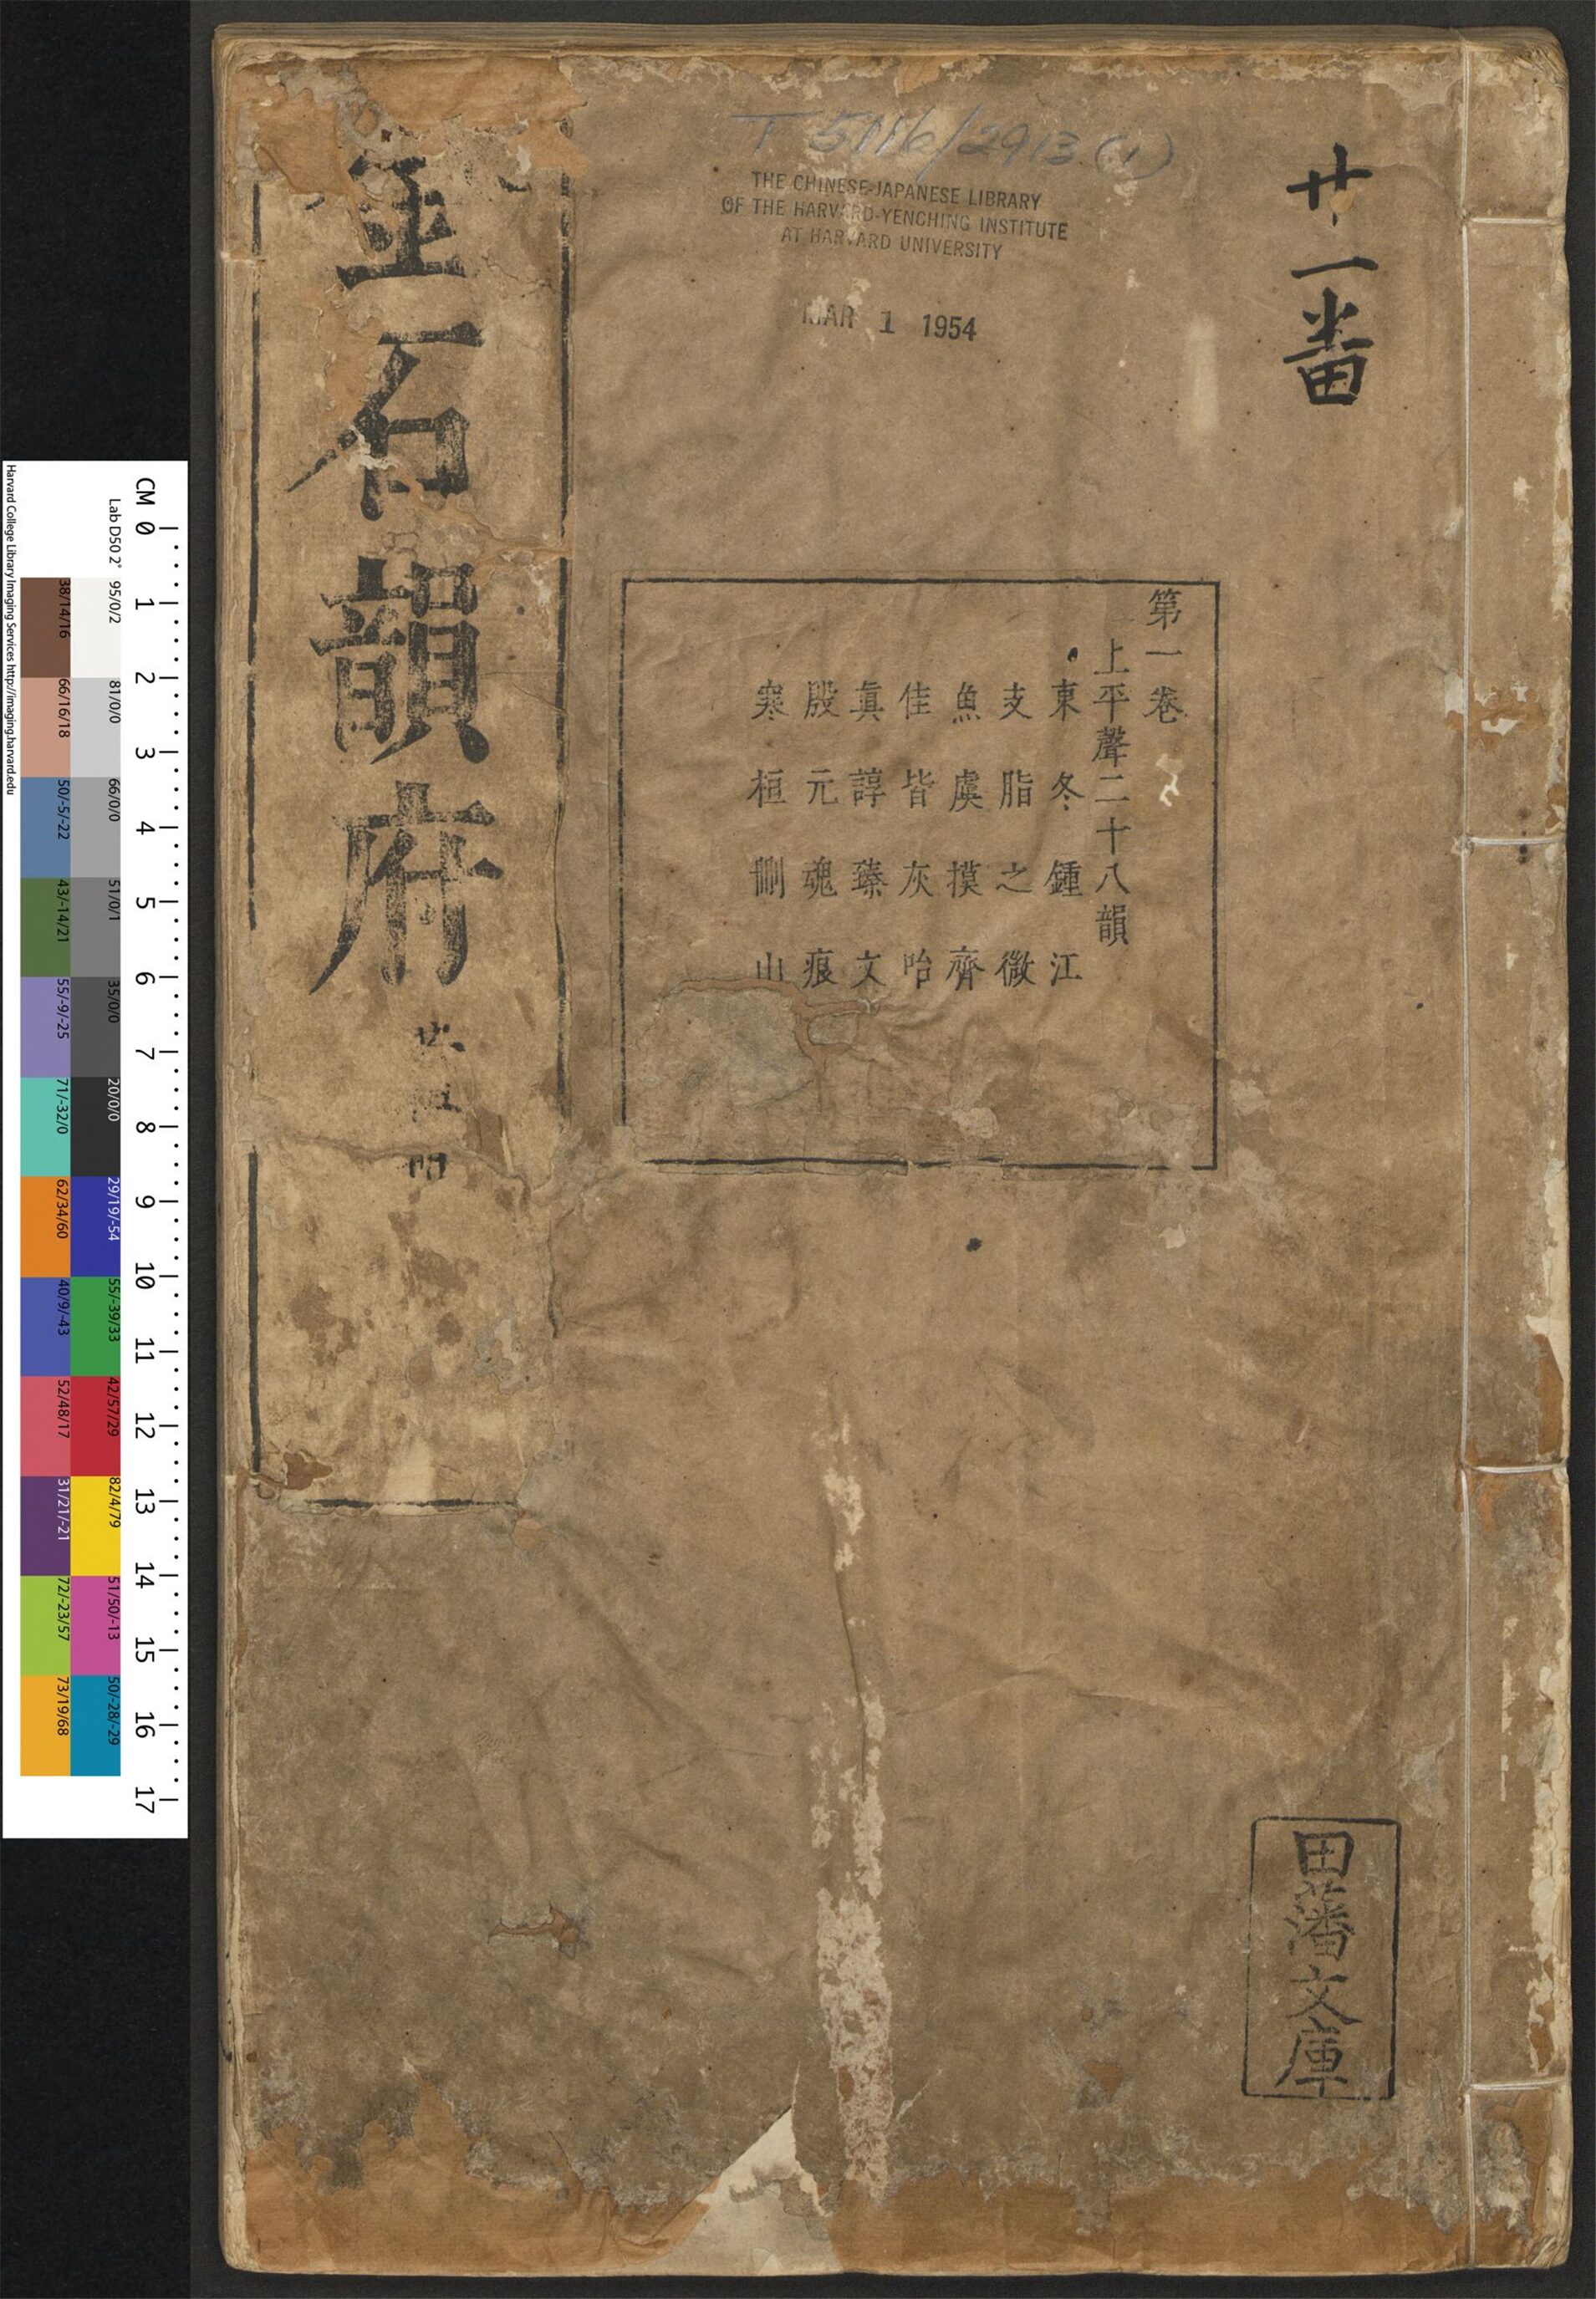 T 5116/2913 (1)
THE CHINESE-JAPANESE LIBRARY
OF THE HARVARD-YENCHING INSTITUTE
AT HARVARD UNIVERSITY
MAR 1 1954
廿一番
田藩文庫
第一卷
上平聲二十八韻
東冬鍾江
支脂之微
魚虞摸齊
佳皆灰咍
眞諄臻文
殷元魂痕
寒桓刪山
金石韻府
CM 0 1 2 3 4 5 6 7 8 9 10 11 12 13 14 15 16 17
Lab D50 2° 95/0/2 81/0/0 66/0/0 51/0/1 35/0/0 20/0/0 29/19/-54 55/-39/33 42/57/29 82/4/79 51/50/-13 50/-28/-29
38/14/16 66/16/18 50/-5/-22 43/-14/21 55/-9/-25 71/-32/0 62/34/60 40/9/-43 52/48/17 31/21/-21 72/-23/57 73/19/68
Harvard College Library Imaging Services http://imaging.harvard.edu